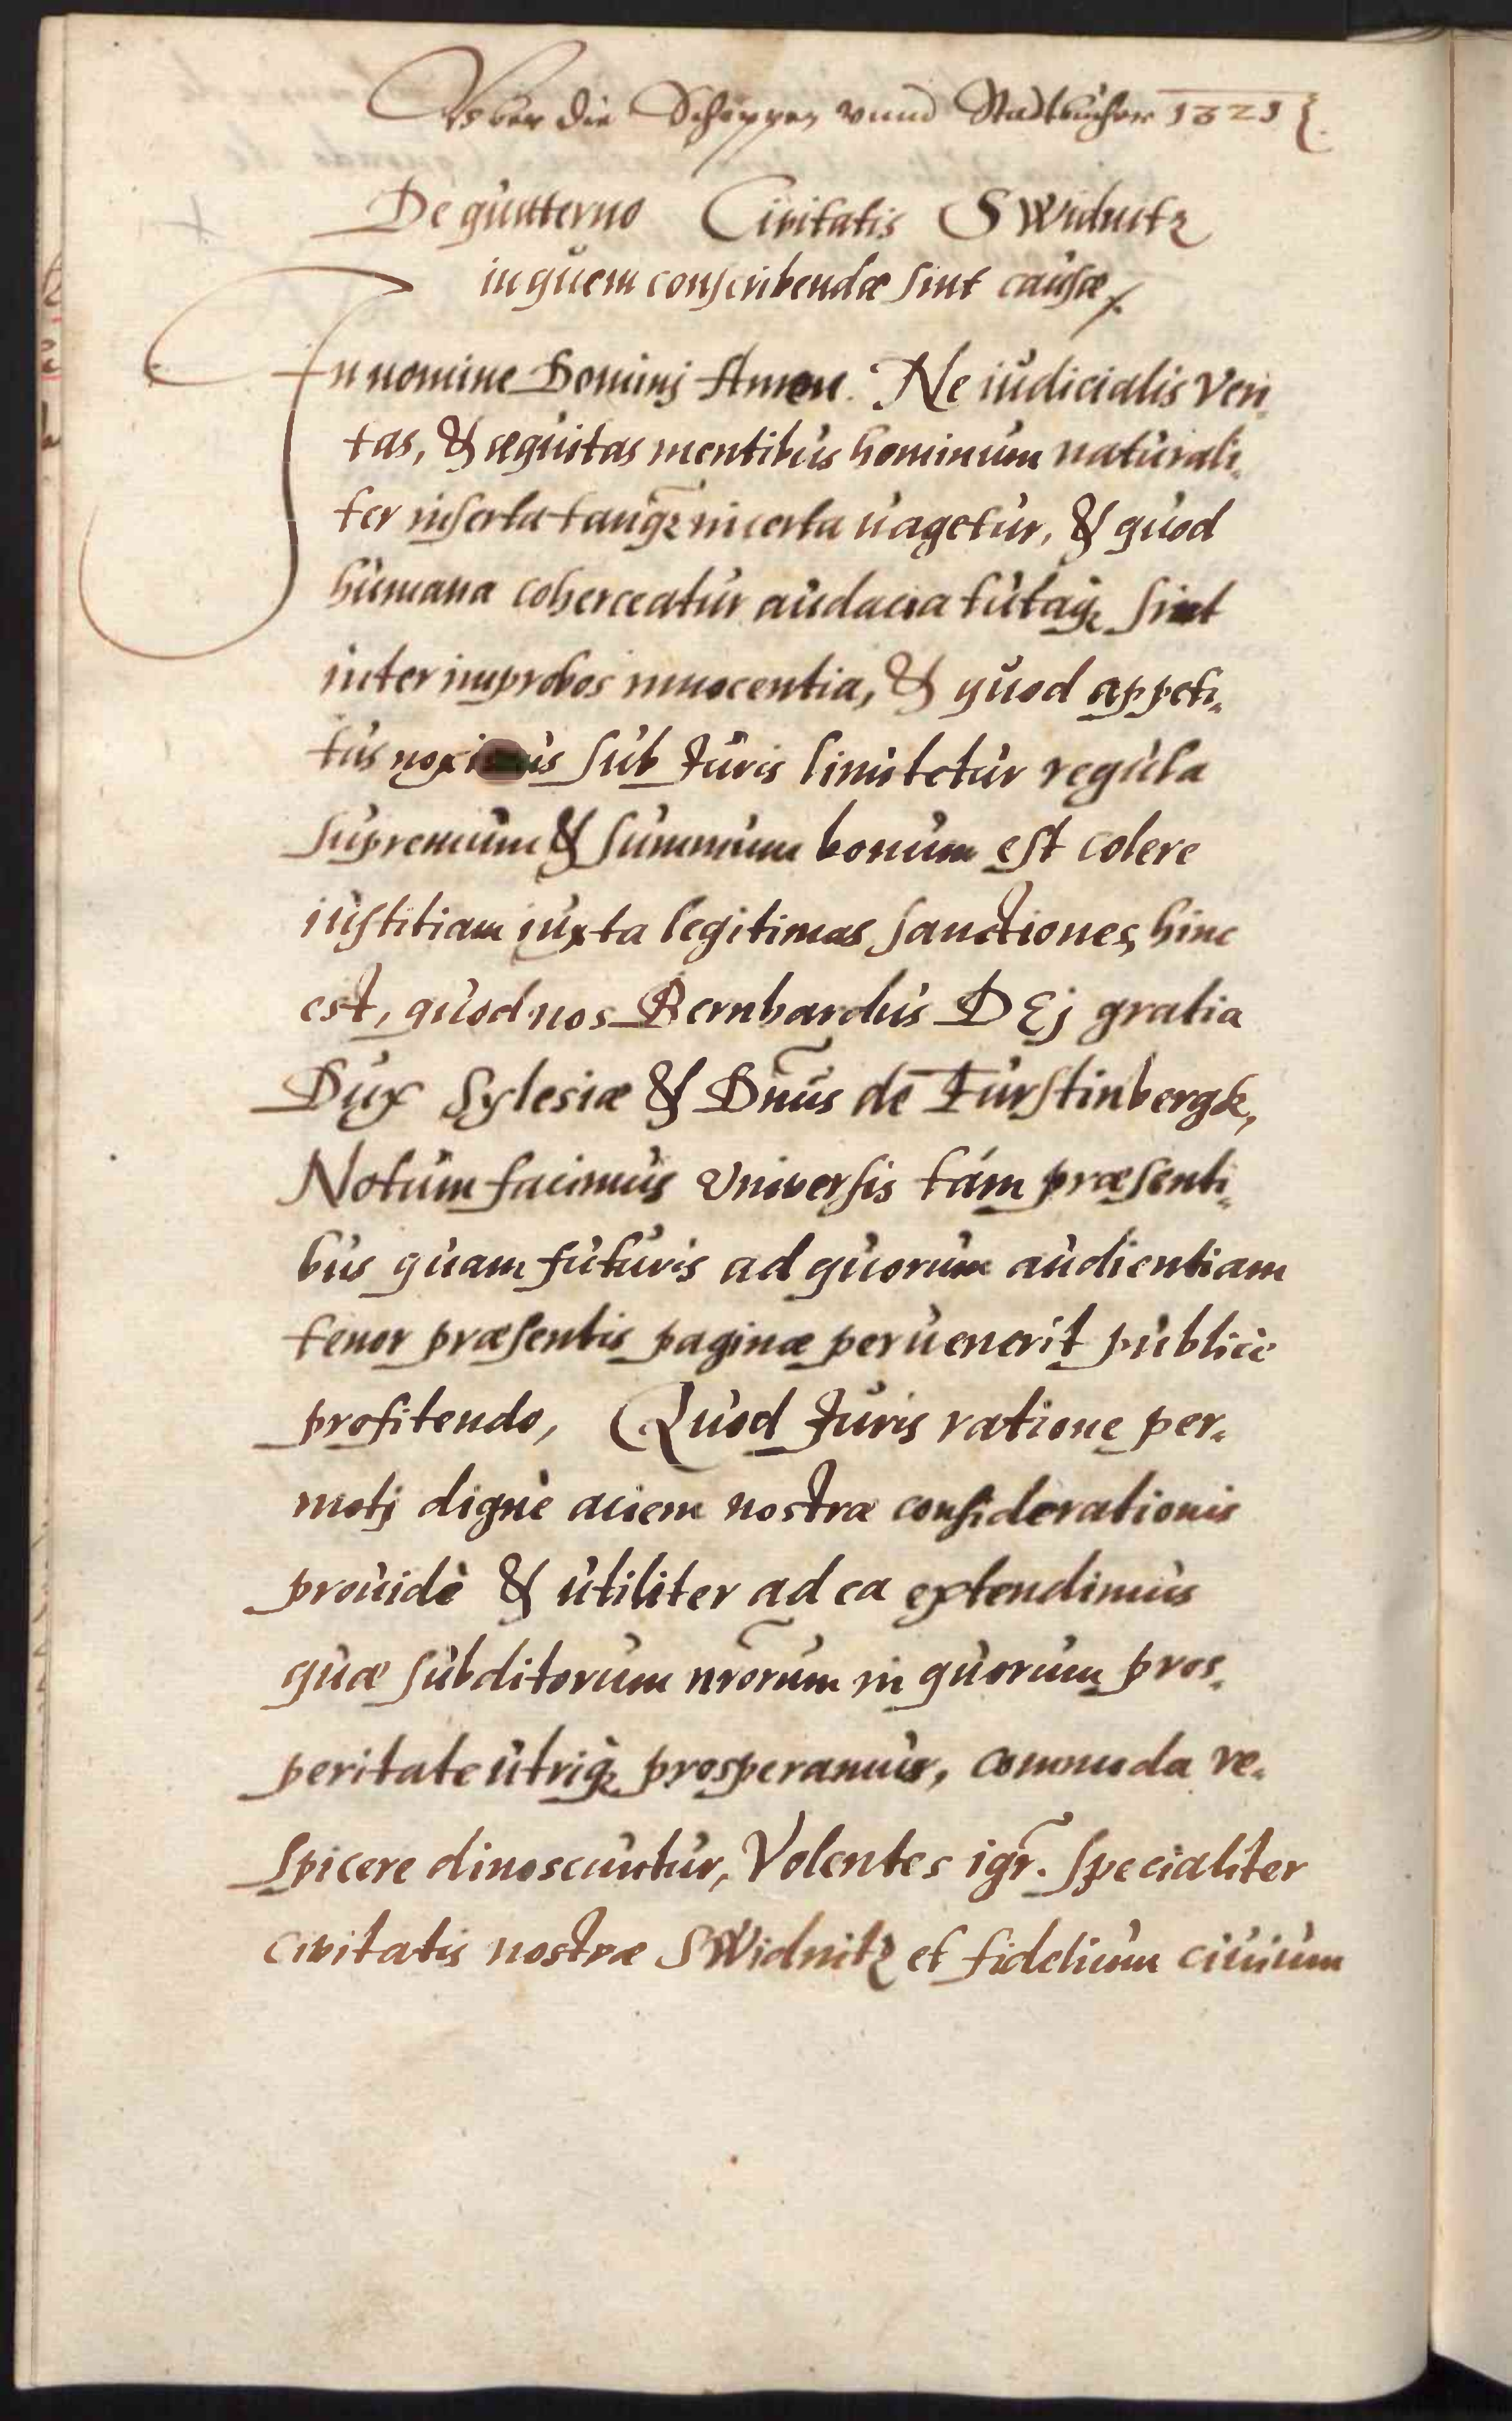 Vber die Schoppen vnnd Stadtbücher 1321
De quatterno Civitatis SWidnitz
in quem conscribendæ sint causæ
In nomine Dominj Amen. Ne iudicialis Veri,
tas, & æquitas mentibus hominum naturali,
ter inserta tanq̃ incerta uagetur, & quod
humana coherceatur audacia tutaq; sint
inter improbos innocentia, & quod appeti,
tus sub Juris limitetur regula
supremum & summum bonum est colere
iustitiam iuxta legitimas sanctiones, hinc
est, quod nos Bernhardus DEj gratia
Dux Sylesiæ & Dñus de Fürstinbergk,
Notum facimus Vniversis tám præsenti,
bus quam futuris ad quorum audientiam
tenor præsentis paginæ peruenerit publicè
profitendo, Quod Juris ratione per,
motj dignè aciem nostræ considerationis
prouidè & utiliter ad ea extendimus
quæ subditorum nr̃orum in quorum pros,
peritate utriq; prosperamur, commoda re,
spicere dinoscuntur, Volentes igr̃. specialiter
civitatis nostræ SWidnitz et fidelium ciuium